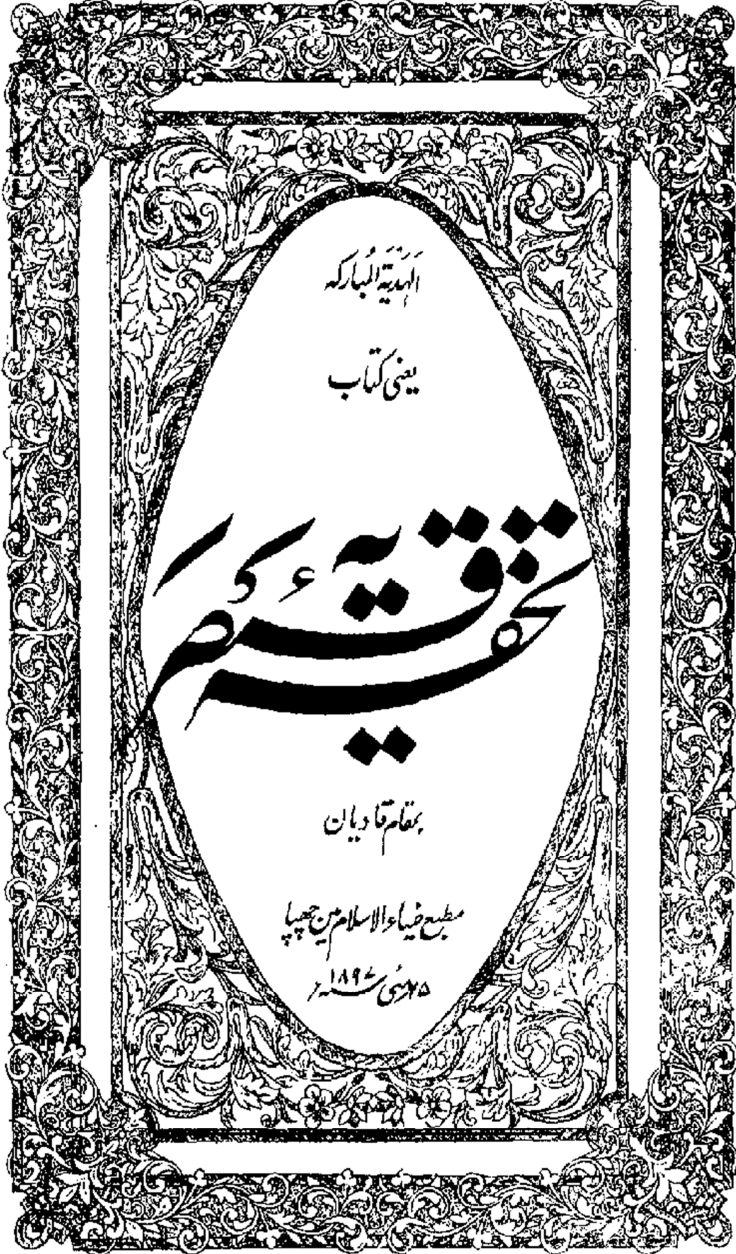 الهَدِیَّةُ المُبارکہ
یعنی کتاب
تحفہ قیصریہ
بمقام قادیان
مطبع ضیاء الاسلام مین چھپا
۲۵ مئی ۱۸۹۷ء